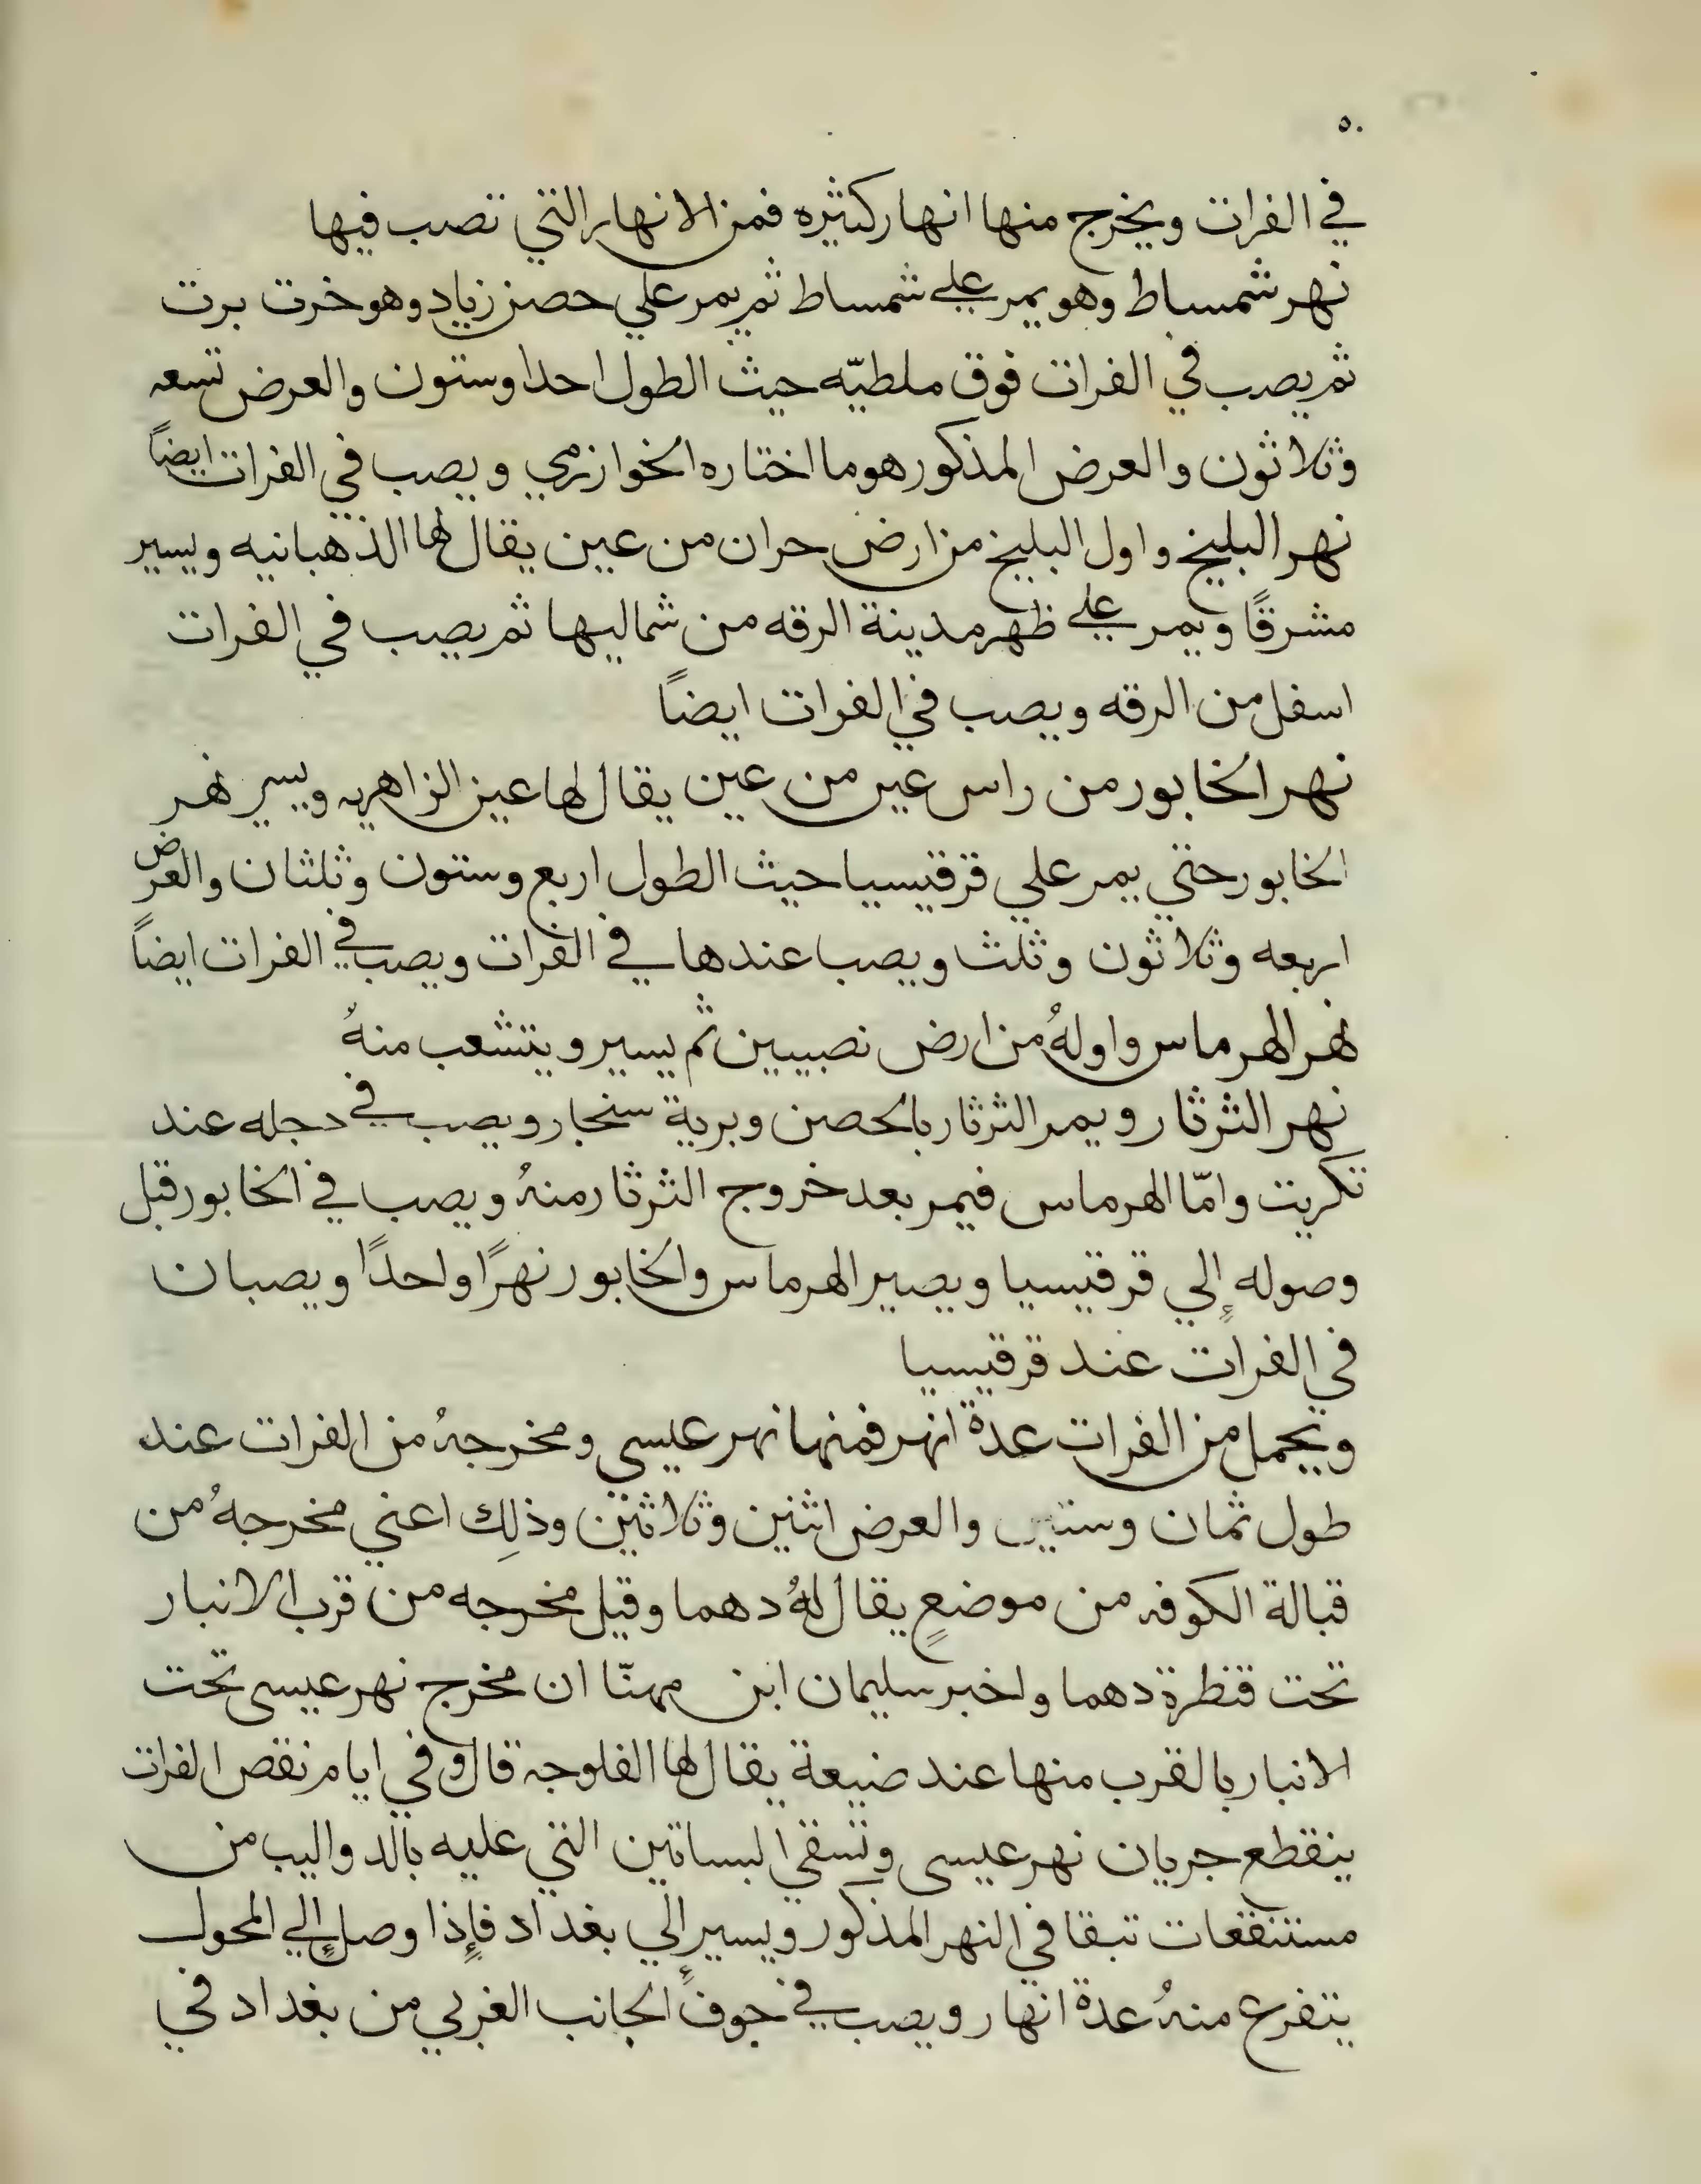 ٥٠
في الفرات ويخرج منها انهار كثيره فمن الانهار التي تصب فيها
نهر شمساط وهو يمر علي شمساط ثم يمر علي حصن زياد وهو خرت برت
ثم يصب في الفرات فوق ملطيّه حيث الطول احدا وستون والعرض تسعه
وثلاثون والعرض المذكور هو ما اختاره الخوارزمي ويصب في الفرات ايضاً
نهر البليخ واول البليخ من ارض حران من عين يقال لها الذهبانيه ويسير
مشرقًا ويمر علي ظهر مدينة الرقه من شماليها ثم يصب في الفرات
اسفل من الرقه ويصب في الفرات ايضاً
نهر الخابور من راس عين من عين يقال لها عين الزاهريه ويسير نهر
الخابور حتي يمر علي قرقيسيا حيث الطول اربع وستون وثلثان والعرض
اربعه وثلاثون وثلث ويصب عندها في الفرات ويصب في الفرات ايضاً
نهر الهرماس واولهُ من ارض نصيبين ثم يسير ويتشعب منهُ
نهر الثرثار ويمر الثرثار بالحصن وبرية سنجار ويصب في دجله عند
تكريت وامّا الهرماس فيمر بعد خروج الثرثار منهُ ويصب في الخابور قبل
وصوله إلي قرقيسيا ويصير الهرماس والخابور نهرًا واحدًا ويصبان
في الفرات عند قرقيسيا
ويحمل من الفرات عدة انهر فمنها نهر عيسي ومخرجهُ من الفرات عند
طول ثمان وستين والعرض اثنين وثلاثين وذلِك اعني مخرجهُ من
قبالة الكوفه من موضعٍ يقال لهُ دهما وقيل مخرجه من قرب الانبار
تحت قنطرة دهما واخبر سليمان ابن مهنّا ان مخرج نهر عيسى تحت
الانبار بالقرب منها عند ضيعة يقال لها الفلوجه قال وفي ايام نقص الفرات
ينقطع جريان نهر عيسى وتسقي البساتين التي عليه بالدواليب من
مستنقعات تبقا في النهر المذكور ويسير إلي بغداد فإذا وصل إلي المحول
يتفرع منهُ عدة انهار ويصب في جوف الجانب الغربي من بغداد في